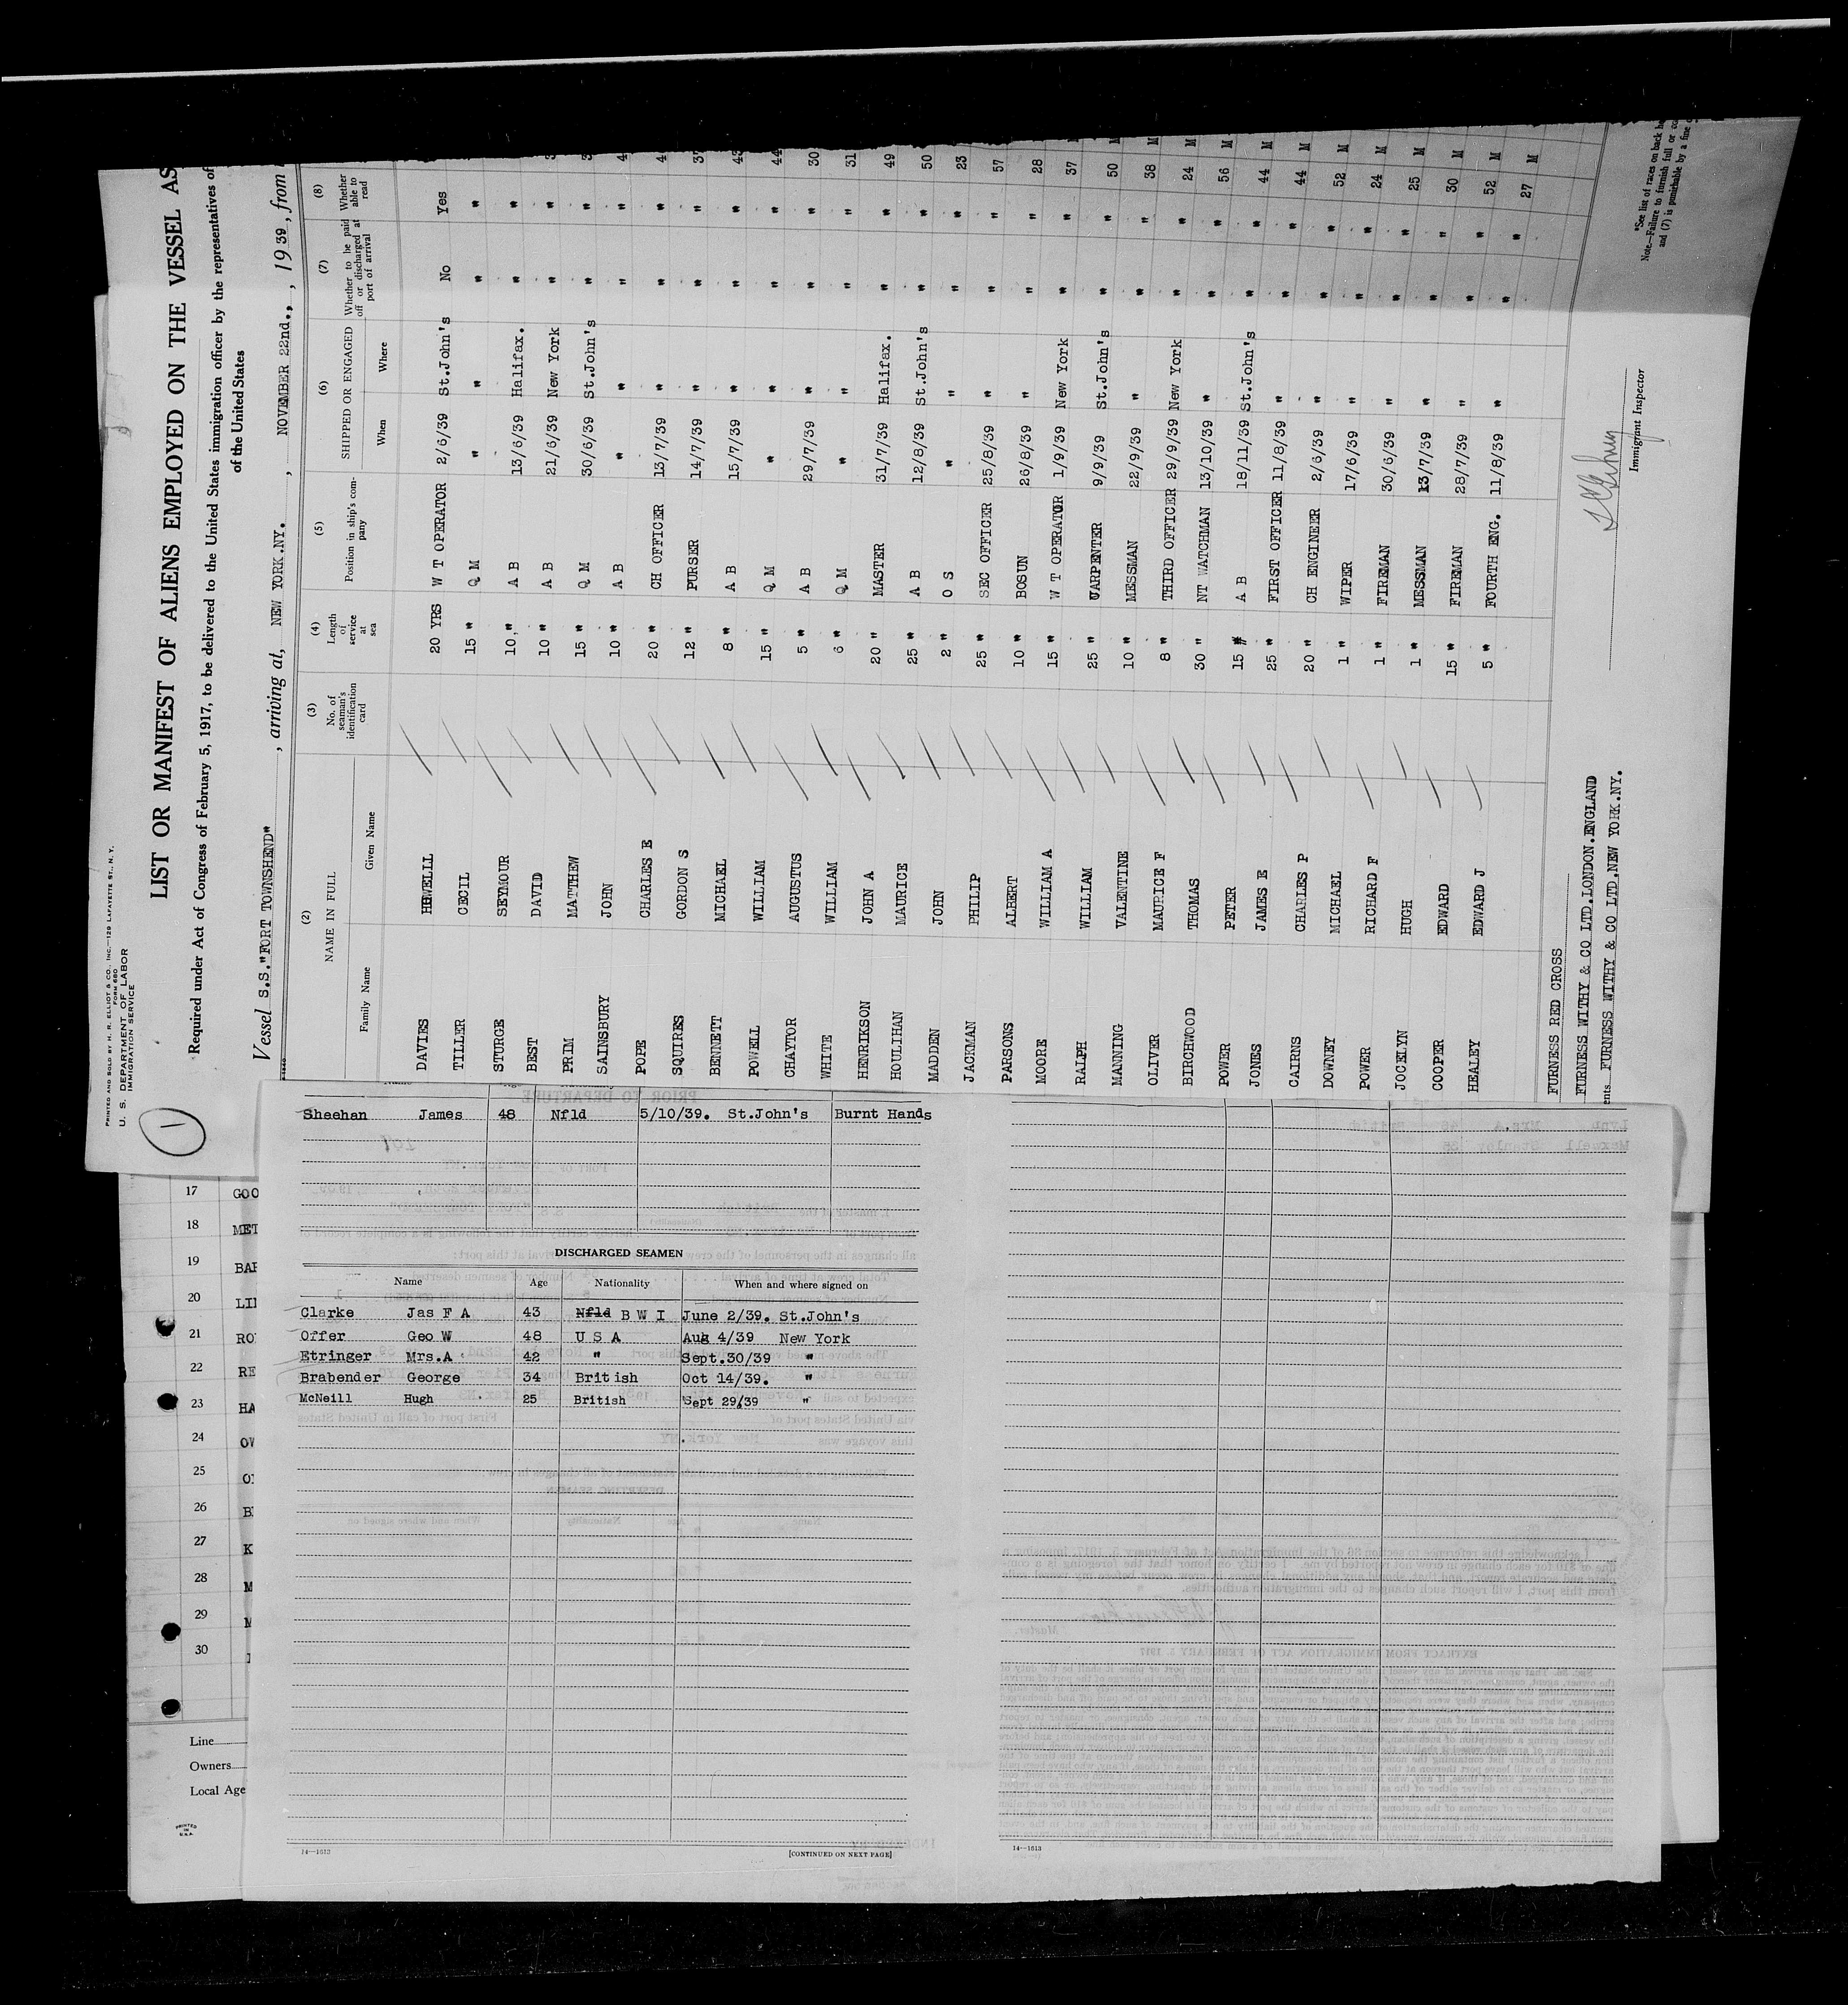 PRINTED AND SOLD BY H. R. ELLIOT & CO., INC.—129 LAFAYETTE ST., N.Y.
FORM 680
U. S. DEPARTMENT OF LABOR
IMMIGRATION SERVICE
1
LIST OR MANIFEST OF ALIENS EMPLOYED ON THE VESSEL AS
Required under Act of Congress of February 5, 1917, to be delivered to the United States immigration officer by the representatives of
of the United States
Vessel S.S."FORT TOWNSHEND", arriving at, NEW YORK.NY., NOVEMBER 22nd., 1939, from
(2) (3) (4) (5) (6) (7) (8)
NAME IN FULL No. of seaman's identification card Length of service at sea Position in ship's company SHIPPED OR ENGAGED Whether to be paid off or discharged at port of arrival Whether able to read
Family Name Given Name When Where
DAVIES HEWELL 20 YRS W T OPERATOR 2/6/39 St.John's No Yes
TILLER CECIL 15 " Q M " " " "
STURGE SEYMOUR 10 " A B 13/6/39 Halifax. " "
BEST DAVID 10 " A B 21/6/39 New York " "
PRIM MATTHEW 15 " Q M 30/6/39 St.John's " "
SAINSBURY JOHN 10 " A B " " " "
POPE CHARLES E 20 " CH OFFICER 13/7/39 " " "
SQUIRES GORDON S 12 " PURSER 14/7/39 " " " 37
BENNETT MICHAEL 8 " A B 15/7/39 " " " 43
POWELL WILLIAM 15 " Q M " " " " 44
CHAYTOR AUGUSTUS 5 " A B 29/7/39 " " " 30
WHITE WILLIAM 6 " Q M " " " " 31
HENRIKSON JOHN A 20 " MASTER 31/7/39 Halifax. " " 49
HOULIHAN MAURICE 25 " A B 12/8/39 St.John's " " 50
MADDEN JOHN 2 " O S " " " " 23
JACKMAN PHILIP 25 " SEC OFFICER 25/8/39 " " " 57
PARSONS ALBERT 10 " BOSUN 26/8/39 " " " 28
MOORE WILLIAM A 15 " W T OPERATOR 1/9/39 New York " " 37 M
RALPH WILLIAM 25 " CARPENTER 9/9/39 St.John's " " 50 M
MANNING VALENTINE 10 " MESSMAN 22/9/39 " " " 38 M
OLIVER MAURICE F 8 " THIRD OFFICER 29/9/39 New York " " 24 M
BIRCHWOOD THOMAS 30 " NT WATCHMAN 13/10/39 " " " 56 M
POWER PETER 15 " A B 18/11/39 St.John's " " 44 M
JONES JAMES E 25 " FIRST OFFICER 11/8/39 " " " 44 M
CAIRNS CHARLES P 20 " CH ENGINEER 2/6/39 " " " 52 M
DOWNEY MICHAEL 1 " WIPER 17/6/39 " " " 24 M
POWER RICHARD F 1 " FIREMAN 30/6/39 " " " 25 M
JOCELYN HUGH 1 " MESSMAN 13/7/39 " " " 30 M
COOPER EDWARD 15 " FIREMAN 28/7/39 " " " 52 M
HEALEY EDWARD J 5 " FOURTH ENG. 11/8/39 " " " 27 M
FURNESS RED CROSS
FURNESS WITHY & CO LTD.LONDON.ENGLAND
ents FURNESS WITHY & CO LTD.NEW YORK.NY.
Immigrant Inspector
*See list of races on back
Note.—Failure to furnish full or
and (7) is punishable by a fine
Sheehan James 48 Nfld 5/10/39. St.John's Burnt Hands
DISCHARGED SEAMEN
Name Age Nationality When and where signed on
Clarke Jas F A 43 Nfld B W I June 2/39. St.John's
Offer Geo W 48 U S A Aug 4/39 New York
Etringer Mrs.A 42 " Sept.30/39 "
Brabender George 34 British Oct 14/39. "
McNeill Hugh 25 British Sept 29/39 "
14—1613
[CONTINUED ON NEXT PAGE]
14—1613
17 GOO
18 MET
19 BAR
20 LI
21 RO
22 RE
23 HA
24 OW
25 O
26 B
27 K
28 M
29 M
30
Line
Owners
Local Age
PRINTED IN U.S.A.